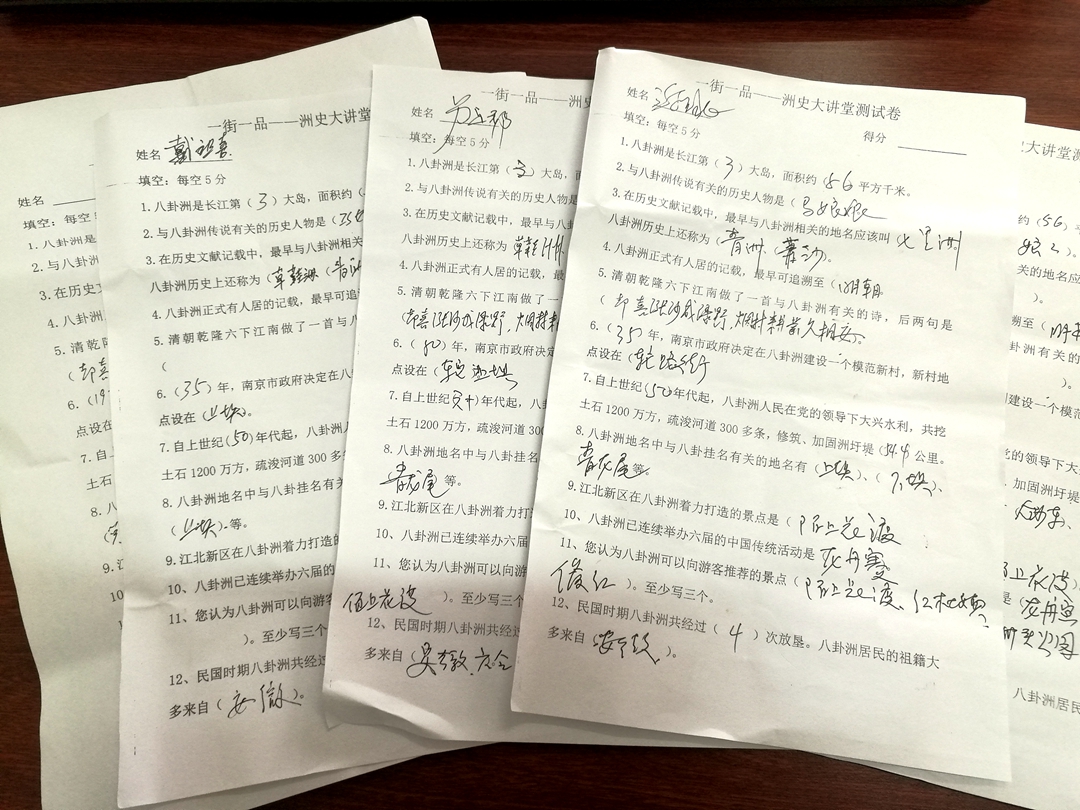 一街一品——洲史大讲堂测试卷
姓名
得分
填空：每空5分
1.八卦洲是长江第（3）大岛，面积约（56平方千米。
2.与八卦洲传说有关的历史人物是（马娘娘
3.在历史文献记载中，最早与八卦洲相关的地名应该叫（七里洲
八卦洲历史上还称为（青洲、草劲）。
4.八卦洲正式有人居的记载，最早可追溯至（明朝
5.清朝乾隆六下江南做了一首与八卦洲有关的诗，后两句是
（却喜涨沙成绿野，烟村耕凿久相安。
6.（35）年，南京市政府决定在八卦洲建设一个模范新村，新村地
点设在（
7.自上世纪（50）年代起，八卦洲人民在党的领导下大兴水利，共挖
土石1200万方，疏浚河道300多条，修筑、加固洲圩堤（54.4公里。
8.八卦洲地名中与八卦挂名有关的地名有（上坝）、（下坝）、
青龙尾等。
9.江北新区在八卦洲着力打造的景点是（陌上花渡
10、八卦洲已连续举办六届的中国传统活动是龙舟赛
11、您认为八卦洲可以向游客推荐的景点（陌上花渡、
）。至少写三个。
12、民国时期八卦洲共经过（4）次放垦。八卦洲居民的祖籍大
多来自（安徽）。
一街一品——洲史
姓名
填空：每空5分
1.八卦洲是长江第（3）大岛，面
2.与八卦洲传说有关的历史人物是
3.在历史文献记载中，最早与八
八卦洲历史上还称为（草鞋洲
4.八卦洲正式有人居的记载，最
5.清朝乾隆六下江南做了一
（却喜涨沙成绿野，烟村耕
6.（80）年，南京市政府决定
点设在（
7.自上世纪（）年代起，八卦
土石1200万方，疏浚河道3
8.八卦洲地名中与八卦挂名
青龙尾等。
9.江北新区在八卦洲着力打
10、八卦洲已连续举办六届
11、您认为八卦洲可以向游
陌上花渡）。至少写三个
12、民国时期八卦洲共经
多来自（安徽、六合
一街一品——洲史大讲堂
姓名 戴祖喜
填空：每空5分
1.八卦洲是长江第（3）大岛，面积约（
2.与八卦洲传说有关的历史人物是（
3.在历史文献记载中，最早与八卦洲相关
八卦洲历史上还称为（草鞋洲（青洲
4.八卦洲正式有人居的记载，最早可追
5.清朝乾隆六下江南做了一首与八
（
6.（35）年，南京市政府决定在八
点设在（上坝）。
7.自上世纪（50）年代起，八卦洲人
土石1200万方，疏浚河道300多
8.八卦洲地名中与八卦挂名有关
（上坝）等。
9.江北新区在八卦洲着力打造的
10、八卦洲已连续举办六届的
11、您认为八卦洲可以向游客
）。至少写三个
12、民国时期八卦洲共经过
多来自（安徽）。
姓名
填空：每空5
1.八卦洲是
2.与八卦
3.在历史文
八卦洲历
4.八卦洲
5.清朝乾
（却喜
6.（19
点设在
7.自上
土石1
8.八
9.江
10
史大讲堂测
约（56）平
关的地名应
）。
溯至（明
卦洲有关的
）。
建设一个模
加固洲圩堤
陌上花渡）
是（龙舟赛
八卦洲居民